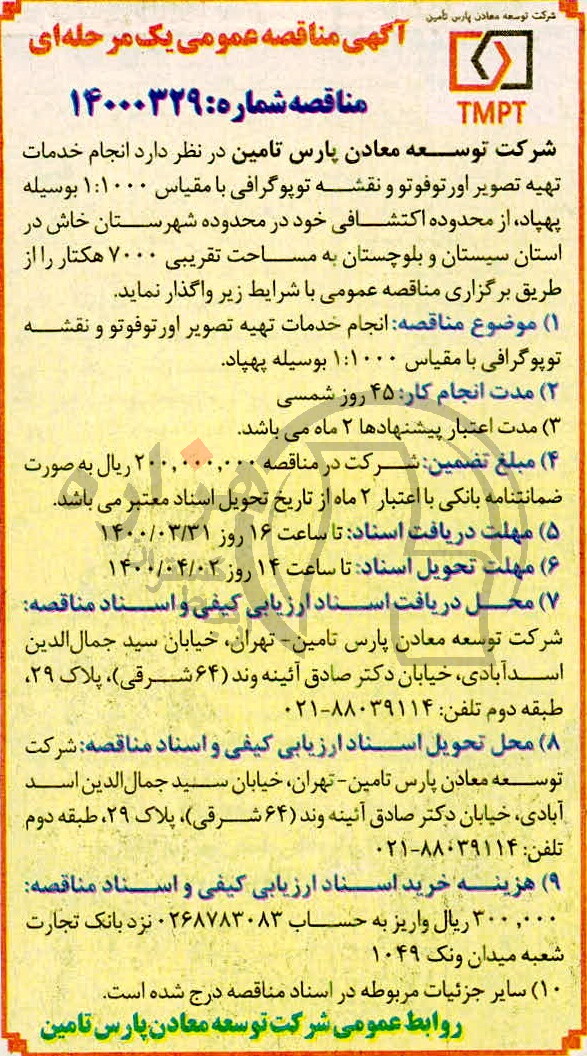 شرکت توسعه معادن پارس تأمین
TMPT
آگهی مناقصه عمومی یک مرحله‌ای
مناقصه شماره: ۱۴۰۰۰۳۲۹
شرکت توسعه معادن پارس تامین در نظر دارد انجام خدمات
تهیه تصویر اورتوفوتو و نقشه توپوگرافی با مقیاس ۱:۱۰۰۰ بوسیله
پهپاد، از محدوده اکتشافی خود در محدوده شهرستان خاش در
استان سیستان و بلوچستان به مساحت تقریبی ۷۰۰۰ هکتار را از
طریق برگزاری مناقصه عمومی با شرایط زیر واگذار نماید.
۱) موضوع مناقصه: انجام خدمات تهیه تصویر اورتوفوتو و نقشه
توپوگرافی با مقیاس ۱:۱۰۰۰ بوسیله پهپاد.
۲) مدت انجام کار: ۴۵ روز شمسی
۳) مدت اعتبار پیشنهادها ۲ ماه می باشد.
۴) مبلغ تضمین: شرکت در مناقصه ۲۰۰,۰۰۰,۰۰۰ ریال به صورت
ضمانتنامه بانکی با اعتبار ۲ ماه از تاریخ تحویل اسناد معتبر می باشد.
۵) مهلت دریافت اسناد: تا ساعت ۱۶ روز ۱۴۰۰/۰۳/۳۱
۶) مهلت تحویل اسناد: تا ساعت ۱۴ روز ۱۴۰۰/۰۴/۰۲
۷) محل دریافت اسناد ارزیابی کیفی و اسناد مناقصه:
شرکت توسعه معادن پارس تامین- تهران، خیابان سید جمال‌الدین
اسدآبادی، خیابان دکتر صادق آئینه وند (۶۴ شرقی)، پلاک ۲۹،
طبقه دوم تلفن: ۸۸۰۳۹۱۱۴-۰۲۱
۸) محل تحویل اسناد ارزیابی کیفی و اسناد مناقصه: شرکت
توسعه معادن پارس تامین-تهران، خیابان سید جمال‌الدین اسد
آبادی، خیابان دکتر صادق آئینه وند (۶۴ شرقی)، پلاک ۲۹، طبقه دوم
تلفن: ۸۸۰۳۹۱۱۴-۰۲۱
۹) هزینه خرید اسناد ارزیابی کیفی و اسناد مناقصه:
۳۰۰,۰۰۰ ریال واریز به حساب ۰۲۶۸۷۸۳۰۸۳ نزد بانک تجارت
شعبه میدان ونک ۱۰۴۹
۱۰) سایر جزئیات مربوطه در اسناد مناقصه درج شده است.
روابط عمومی شرکت توسعه معادن پارس تامین